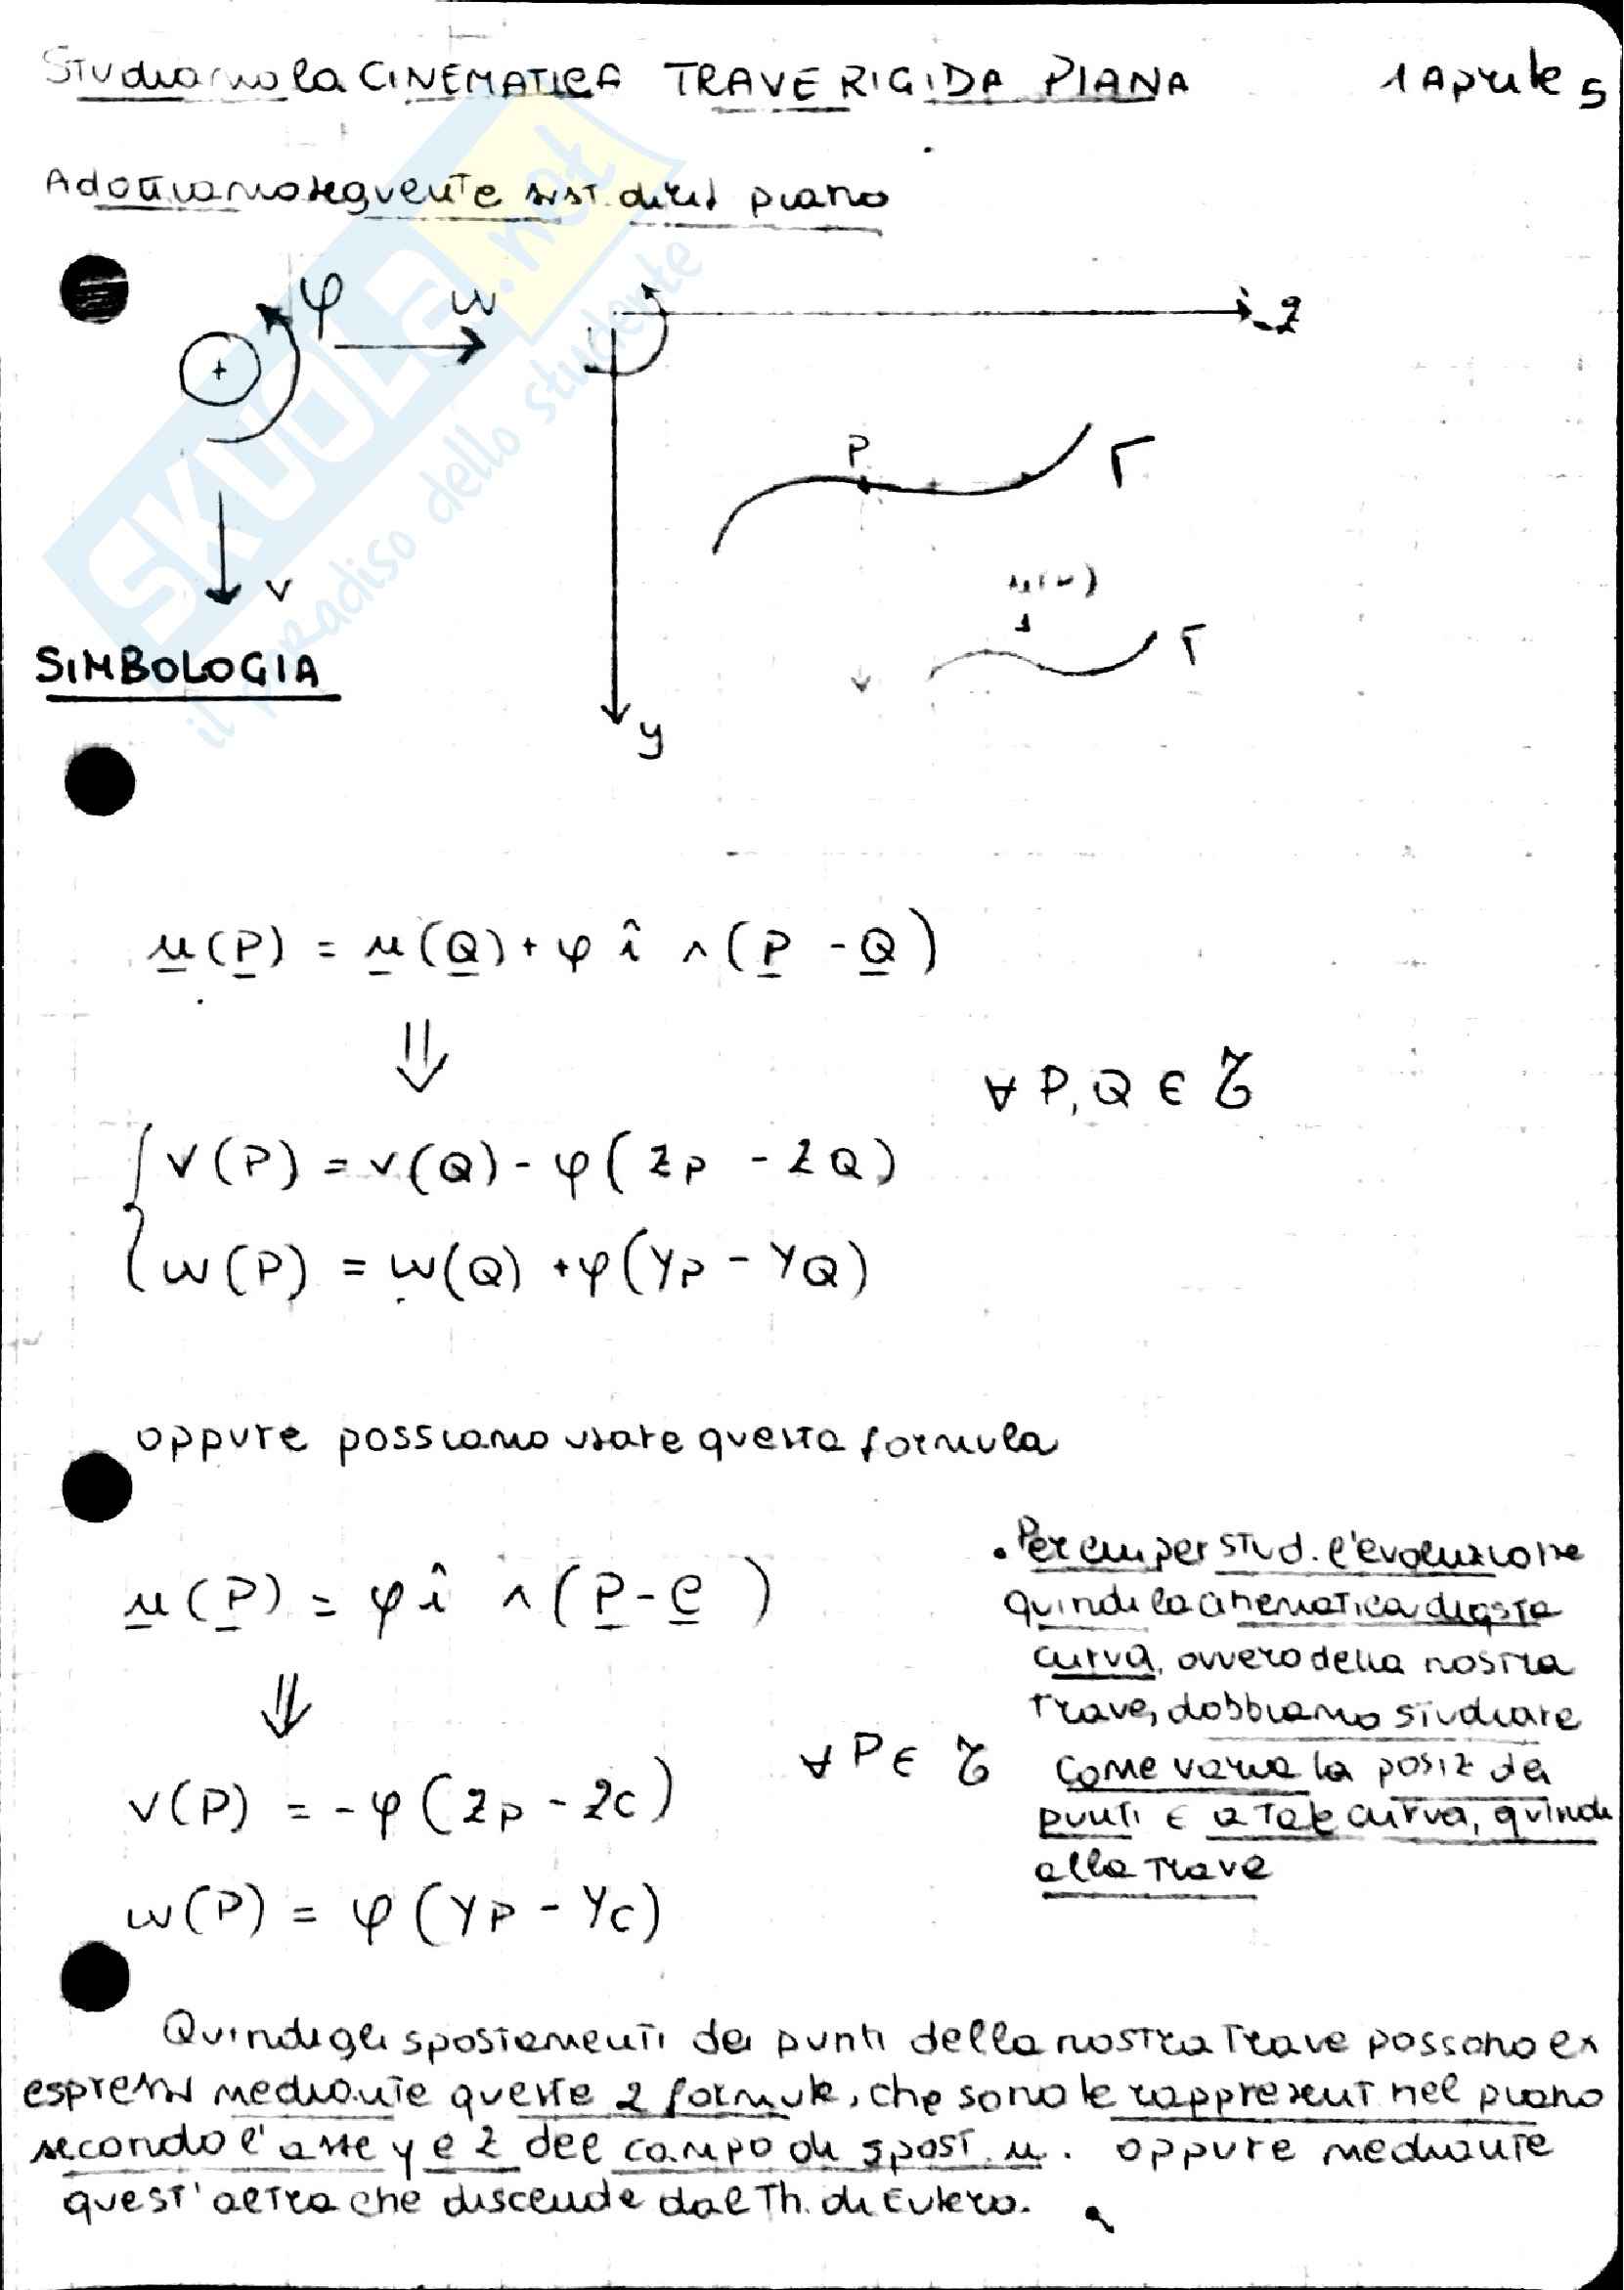 Studiamo la CINEMATICA TRAVE RIGIDA PIANA 1 Aprile 5
Adottiamo seguente sist. di rif piano
φ w z
P Γ
v
Γ
SIMBOLOGIA
y
u(P) = u(Q) + φ î ∧ (P - Q)
⇓
∀ P, Q ∈ τ
v(P) = v(Q) - φ(zP - zQ)
w(P) = w(Q) + φ(yP - yQ)
oppure possiamo usare questa formula
u(P) = φ î ∧ (P - C)
⇓
v(P) = -φ(zP - zC) ∀ P ∈ τ
w(P) = φ(yP - yC)
• Per cui per stud. l'evoluzione
quindi la cinematica di qsta
curva, ovvero della nostra
trave, dobbiamo studiare
come varia la posiz dei
punti ∈ a tale curva, quindi
alla trave
Quindi gli spostamenti dei punti della nostra trave possono ex
espressi mediante queste 2 formule, che sono le rappresent nel piano
secondo l'asse y e z del campo di spost. u. oppure mediante
quest'altra che discende dal Th. di Eulero.
SKUOLA.net
il paradiso dello studente